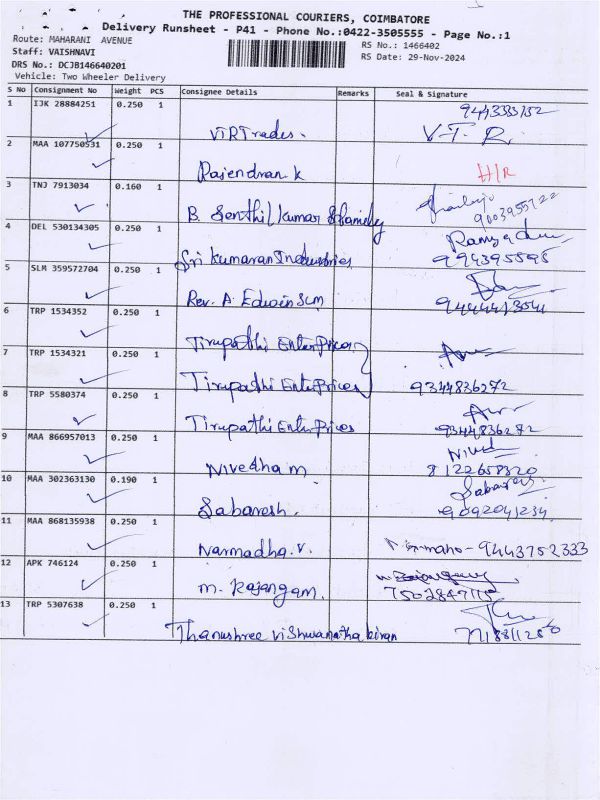 THE PROFESSIONAL COURIERS, COIMBATORE
Delivery Runsheet - P41 - Phone No.:0422-3505555 - Page No.:1
Route: MAHARANI AVENUE
RS No.: 1466402
Staff: VAISHNAVI
RS Date: 29-Nov-2024
DRS No.: DCJB146640201
Vehicle: Two Wheeler Delivery
S No Consignment No Weight PCS Consignee Details Remarks Seal & Signature
1 IJK 28884251 0.250 1
VTR Trades. V.T.R.
2 MAA 107750531 0.250 1
Rajendran.K H/R
3 TNJ 7913034 0.160 1
B. Senthil Kumar & family 9003955722
4 DEL 530134305 0.250 1
Sri Kumaran Industries 994395595
5 SLM 359572704 0.250 1
Rev. A. Edwin SLM
6 TRP 1534352 0.250 1
Tirupathi Enterprices
7 TRP 1534321 0.250 1
Tirupathi Enterprices 9344836272
8 TRP 5580374 0.250 1
Tirupathi Enterprices 9344836272
9 MAA 866957013 0.250 1
Nivedha m Nived
8122658320
10 MAA 302363130 0.190 1
Sabaresh. Sabaresh
9092041234
11 MAA 868135938 0.250 1
Narmadha.V. 9443752333
12 APK 746124 0.250 1
m. Rajangam. 7502847115
13 TRP 5307638 0.250 1
Thanushree vishwanatha kiran